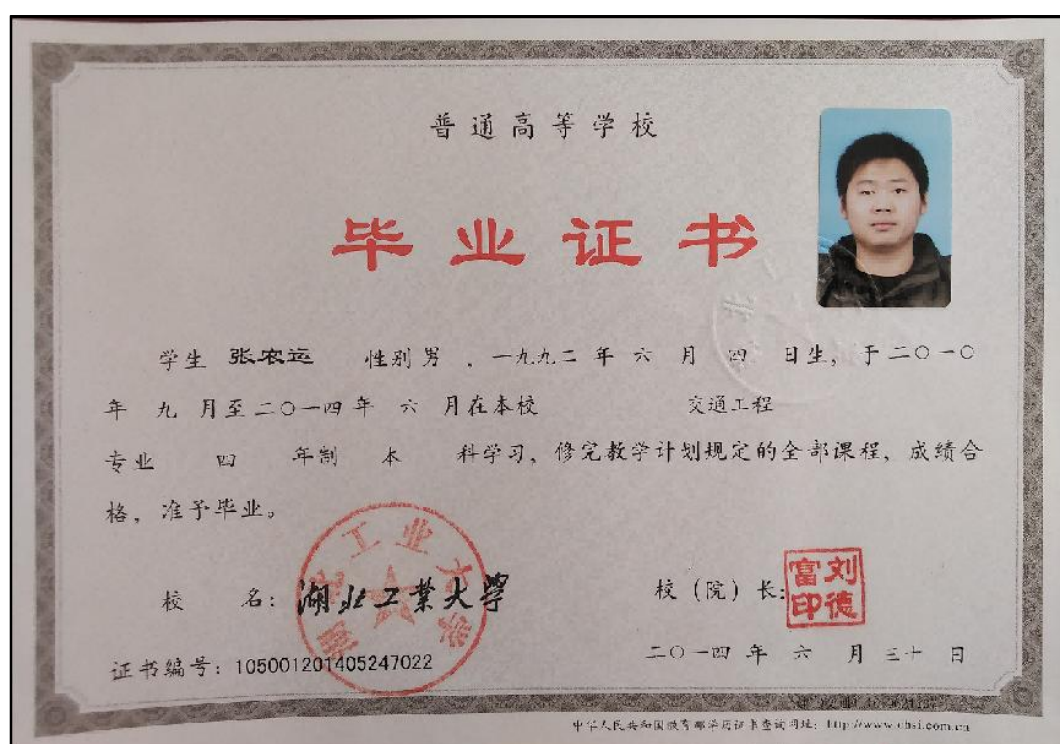 普通高等学校
毕业证书
学生 张农运 性别 男 ，一九九二 年 六 月 四 日生，于二〇一〇
年 九 月至二〇一四年 六 月在本校 交通工程
专业 四 年制 本 科学习，修完教学计划规定的全部课程，成绩合
格，准予毕业。
校 名：湖北工業大學
校（院）长：
刘德富印
湖北工业大学
证书编号：105001201405247022
二〇一四 年 六 月 三十 日
中华人民共和国教育部学历证书查询网址：http://www.chsi.com.cn